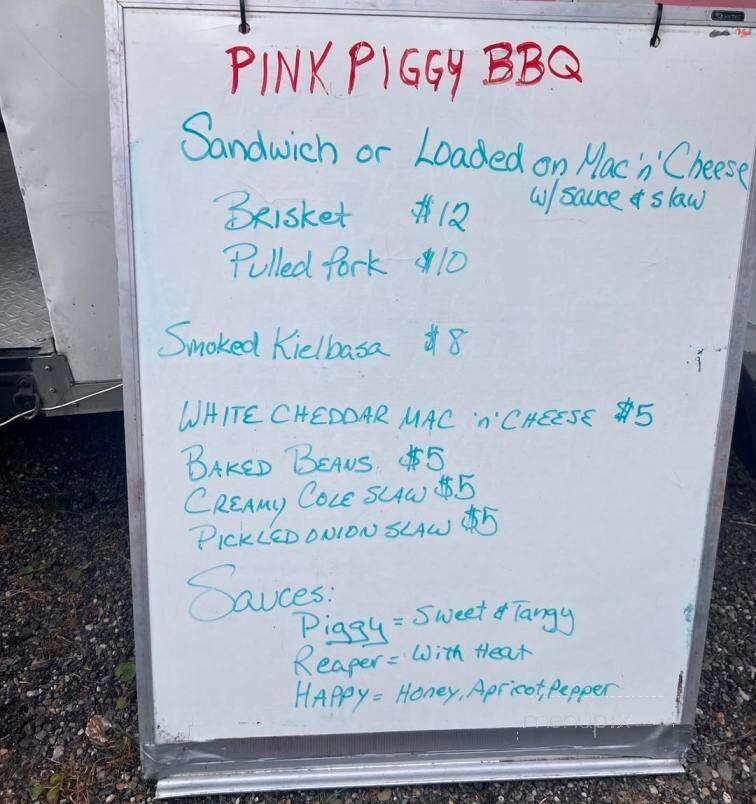 PINK PIGGY BBQ
Sandwich or Loaded on Mac 'n' Cheese
w/ sauce & slaw
BRISKET $12
Pulled Pork $10
Smoked Kielbasa $8
WHITE CHEDDAR MAC 'n' CHEESE $5
BAKED BEANS $5
CREAMY COLE SLAW $5
PICKLED ONION SLAW $5
Sauces:
Piggy = Sweet & Tangy
Reaper = With Heat
HAPPY = Honey, Apricot, Pepper